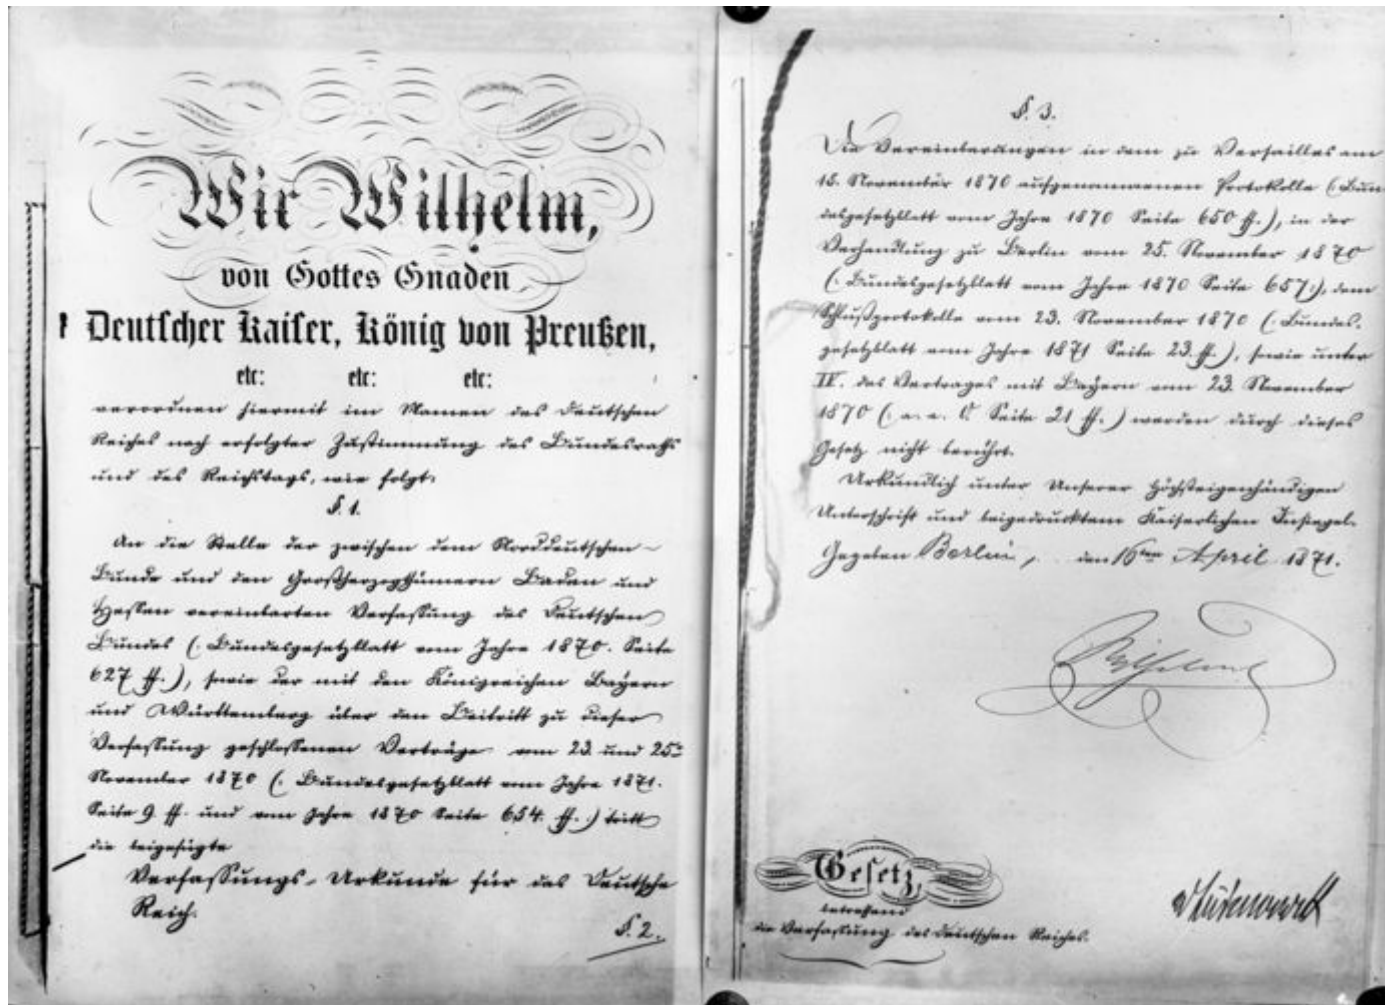 Wir Wilhelm,
von Gottes Gnaden
Deutscher Kaiser, König von Preußen,
etc: etc: etc:
verordnen hiermit im Namen des Deutschen
Reiches nach erfolgter Zustimmung des Bundesraths
und des Reichstags, wie folgt:
§. 1.
An die Stelle der zwischen dem Norddeutschen
Bunde und den Großherzogthümern Baden und
Hessen vereinbarten Verfassung des Deutschen
Bundes (: Bundesgesetzblatt vom Jahre 1870. Seite
627 ff. :), sowie der mit den Königreichen Bayern
und Württemberg über den Beitritt zu dieser
Verfassung geschlossenen Verträge vom 23. und 25.
November 1870 (: Bundesgesetzblatt vom Jahre 1871.
Seite 9 ff. und vom Jahre 1870 Seite 654. ff. :) tritt
die beigefügte
Verfassungs-Urkunde für das Deutsche
Reich.
§. 2.
§. 3.
Die Vereinbarungen in dem zu Versailles am
15. November 1870 aufgenommenen Protokolle (: Bun
desgesetzblatt vom Jahre 1870 Seite 650 ff. :), in der
Verhandlung zu Berlin vom 25. November 1870
(: Bundesgesetzblatt vom Jahre 1870 Seite 657 :), dem
Schlußprotokolle vom 23. November 1870 (: Bundes-
gesetzblatt vom Jahre 1871 Seite 23. ff. :), sowie unter
IV. des Vertrages mit Bayern vom 23. November
1870 (: a. a. O. Seite 21 ff. :) werden durch dieses
Gesetz nicht berührt.
Urkundlich unter Unserer Höchsteigenhändigen
Unterschrift und beigedrucktem Kaiserlichen Insiegel.
Gegeben Berlin, den 16ten April 1871.
Wilhelm
Gesetz,
betreffend
die Verfassung des Deutschen Reiches.